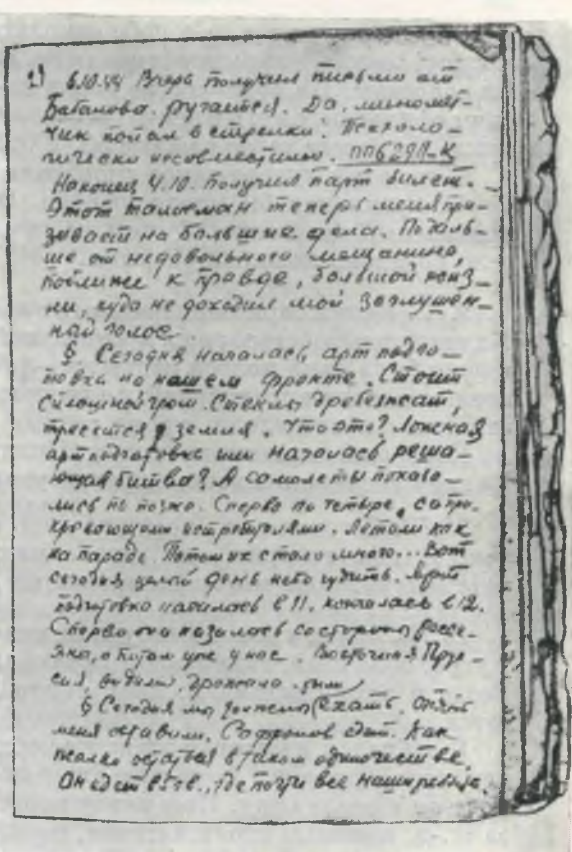 2) 6.10.44 Вчера получил письмо от
Бабанова. ругается. Да, миномет-
чик попал в стрелки. Психоло-
гически несовместимо. ПП6298-К
Наконец 4.10. получил парт билет.
Этот талисман теперь меня при-
зывает на большие дела. Подаль-
ше от недовольного мещанина,
поближе к правде, большой жиз-
ни, куда не доходил мой заглушен-
ный голос.
§ Сегодня началась арт подго-
товка на нашем фронте. Стоит
сплошной гром. Стекла дребезжат,
трясется земля. Что это? Ложная
артподготовка или началась реша-
ющая битва? А самолеты показа-
лись по позже. Сперва по четыре, с
истребителями. Летали как
на параде. Потом их стало много... Вот
сегодня целый день небо гудить. Арт
подготовка началась в 11. кончалась в 12.
Сперва она казалась со стороны
а потом уже у нас. Восточная Прус-
сия, видим,
§ Сегодня мы должны ехать. Опять
меня оставили. Сафронов едет. Как
тяжко остаться в таком одиночестве.
Он едет в где почти все наши ребята.